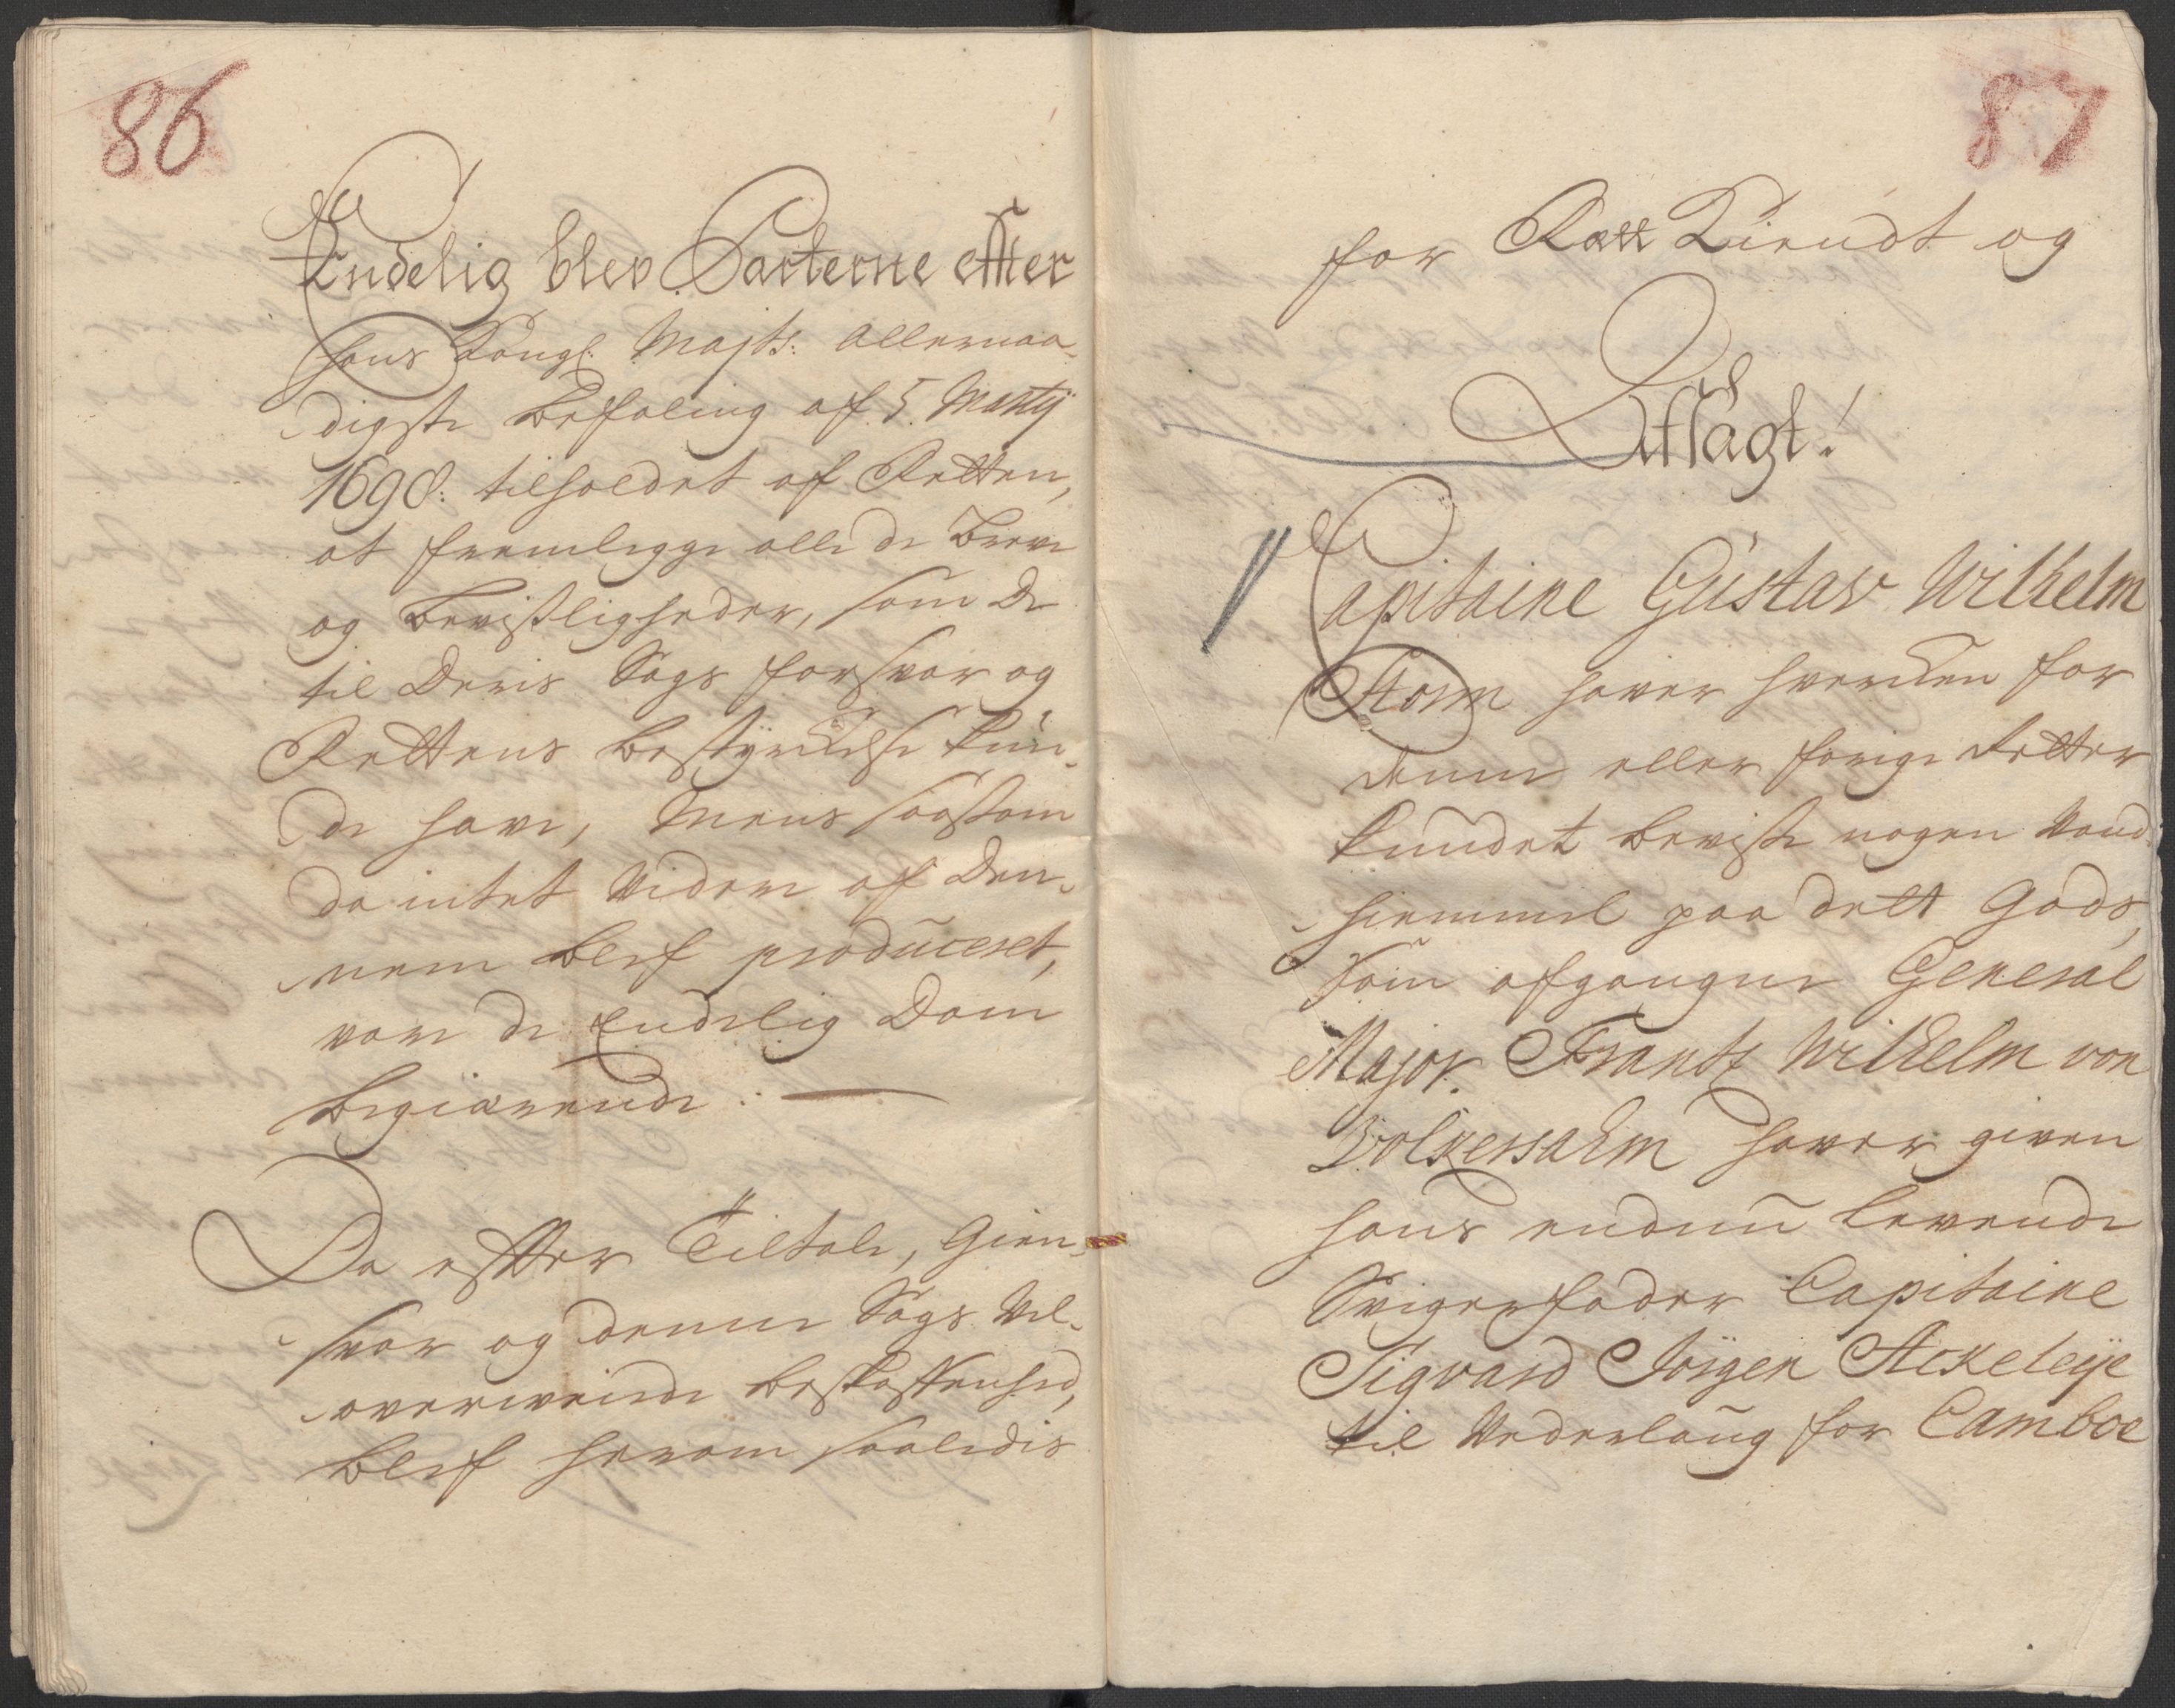 86
Endelig blev Parterne efter
hans Kongl: Majts: allernaa-
digste befaling af 5. Martij
1698: tilholdet af Retten,
at fremligge alle de breve
og bevisligheder, som de
til deris Sags forsvar og
Rettens bestyrckelse kun-
de have, Mens saasom
da intet videre af den-
nem blef produceret,
vare de Endelig Dom
begiærende: —
Da efter Tiltale, Gien-
svar og denne Sags vel-
overveiede beskaffenhed,
blef herom saaledis
87
for Rætt Kiendt og
Afsagt!
Capitaine Gustav Wilhelm
Storm haver hvercken for
denne eller forige Retter
kundet beviise nogen vand-
hiemmel paa dett Gods,
som afgangne General
Major Frantz Wilhelm von
Volkersahm haver given
hans endnu levende
Svigerfader Capitaine
Sigvard Jörgen Ackeleÿe
til Vederlaug for Camboe